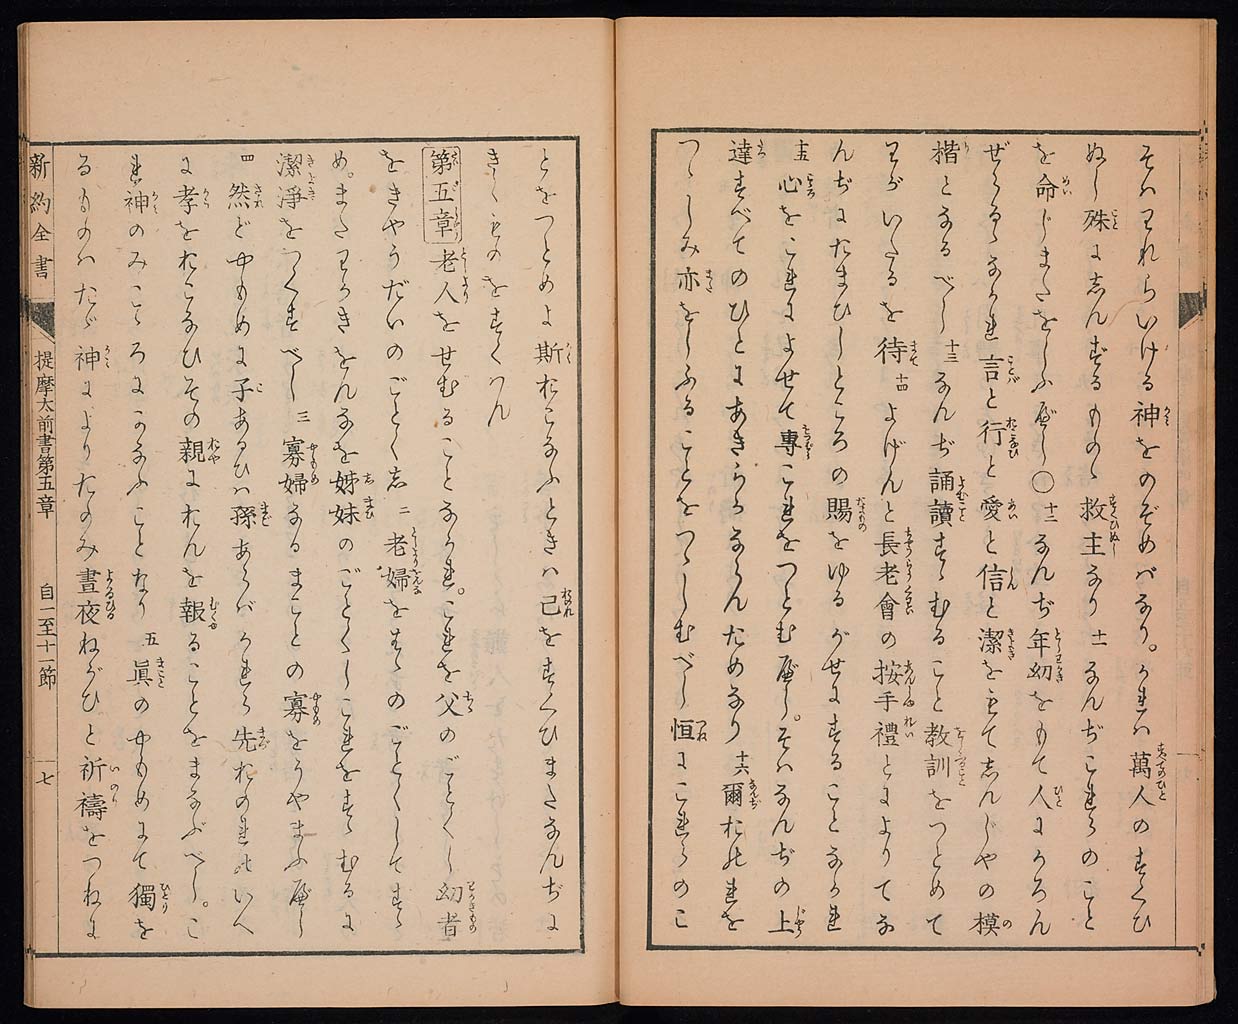 そハわれらいける神をのぞめバなり。かれハ萬人のすくひ
ぬし殊に志んずるものゝ救主なり十一なんぢこれらのこと
を命じまたをしふべし〇十二なんぢ年幼をもて人にかろん
ぜらるゝなかれ言と行と愛と信と潔をもて志んじやの模
楷となるべし十三なんぢ誦讀すゝむること教訓をつとめて
わがいたるを待十四よげんと長老會の按手禮とによりてな
んぢにたまひしところの賜をゆるがせにすることなかれ
十五心をこれによせて專これをつとむべし。そハなんぢの上
達すべてのひとにあきらかならんためなり十六爾おのれを
つゝしみ亦をしふることをつゝしむべし恒にこれらのこ
とをつとめよ斯おこなふときハ己をすくひまたなんぢに
きくものをすくハん
第五章 老人をせむることなかれ。これを父のごとくし幼者
をきやうだいのごとく志二老婦をはゝのごとくしてすゝ
め。またわかきをんなを姊妹のごとくしこれをすゝむるに
潔淨をつくすべし三寡婦なるまことの寡をうやまふべし
四然どやもめに子あるひハ孫あらバかれら先おのれのいへ
に孝をおこなひその親におんを報ることをまなぶべし。こ
れ神のみこゝろにかなふことなり五眞のやもめにて獨を
るものハたゞ神によりたのみ晝夜ねがひと祈禱をつねに
新約全書
提摩太前書第五章
自一至十一節
一七